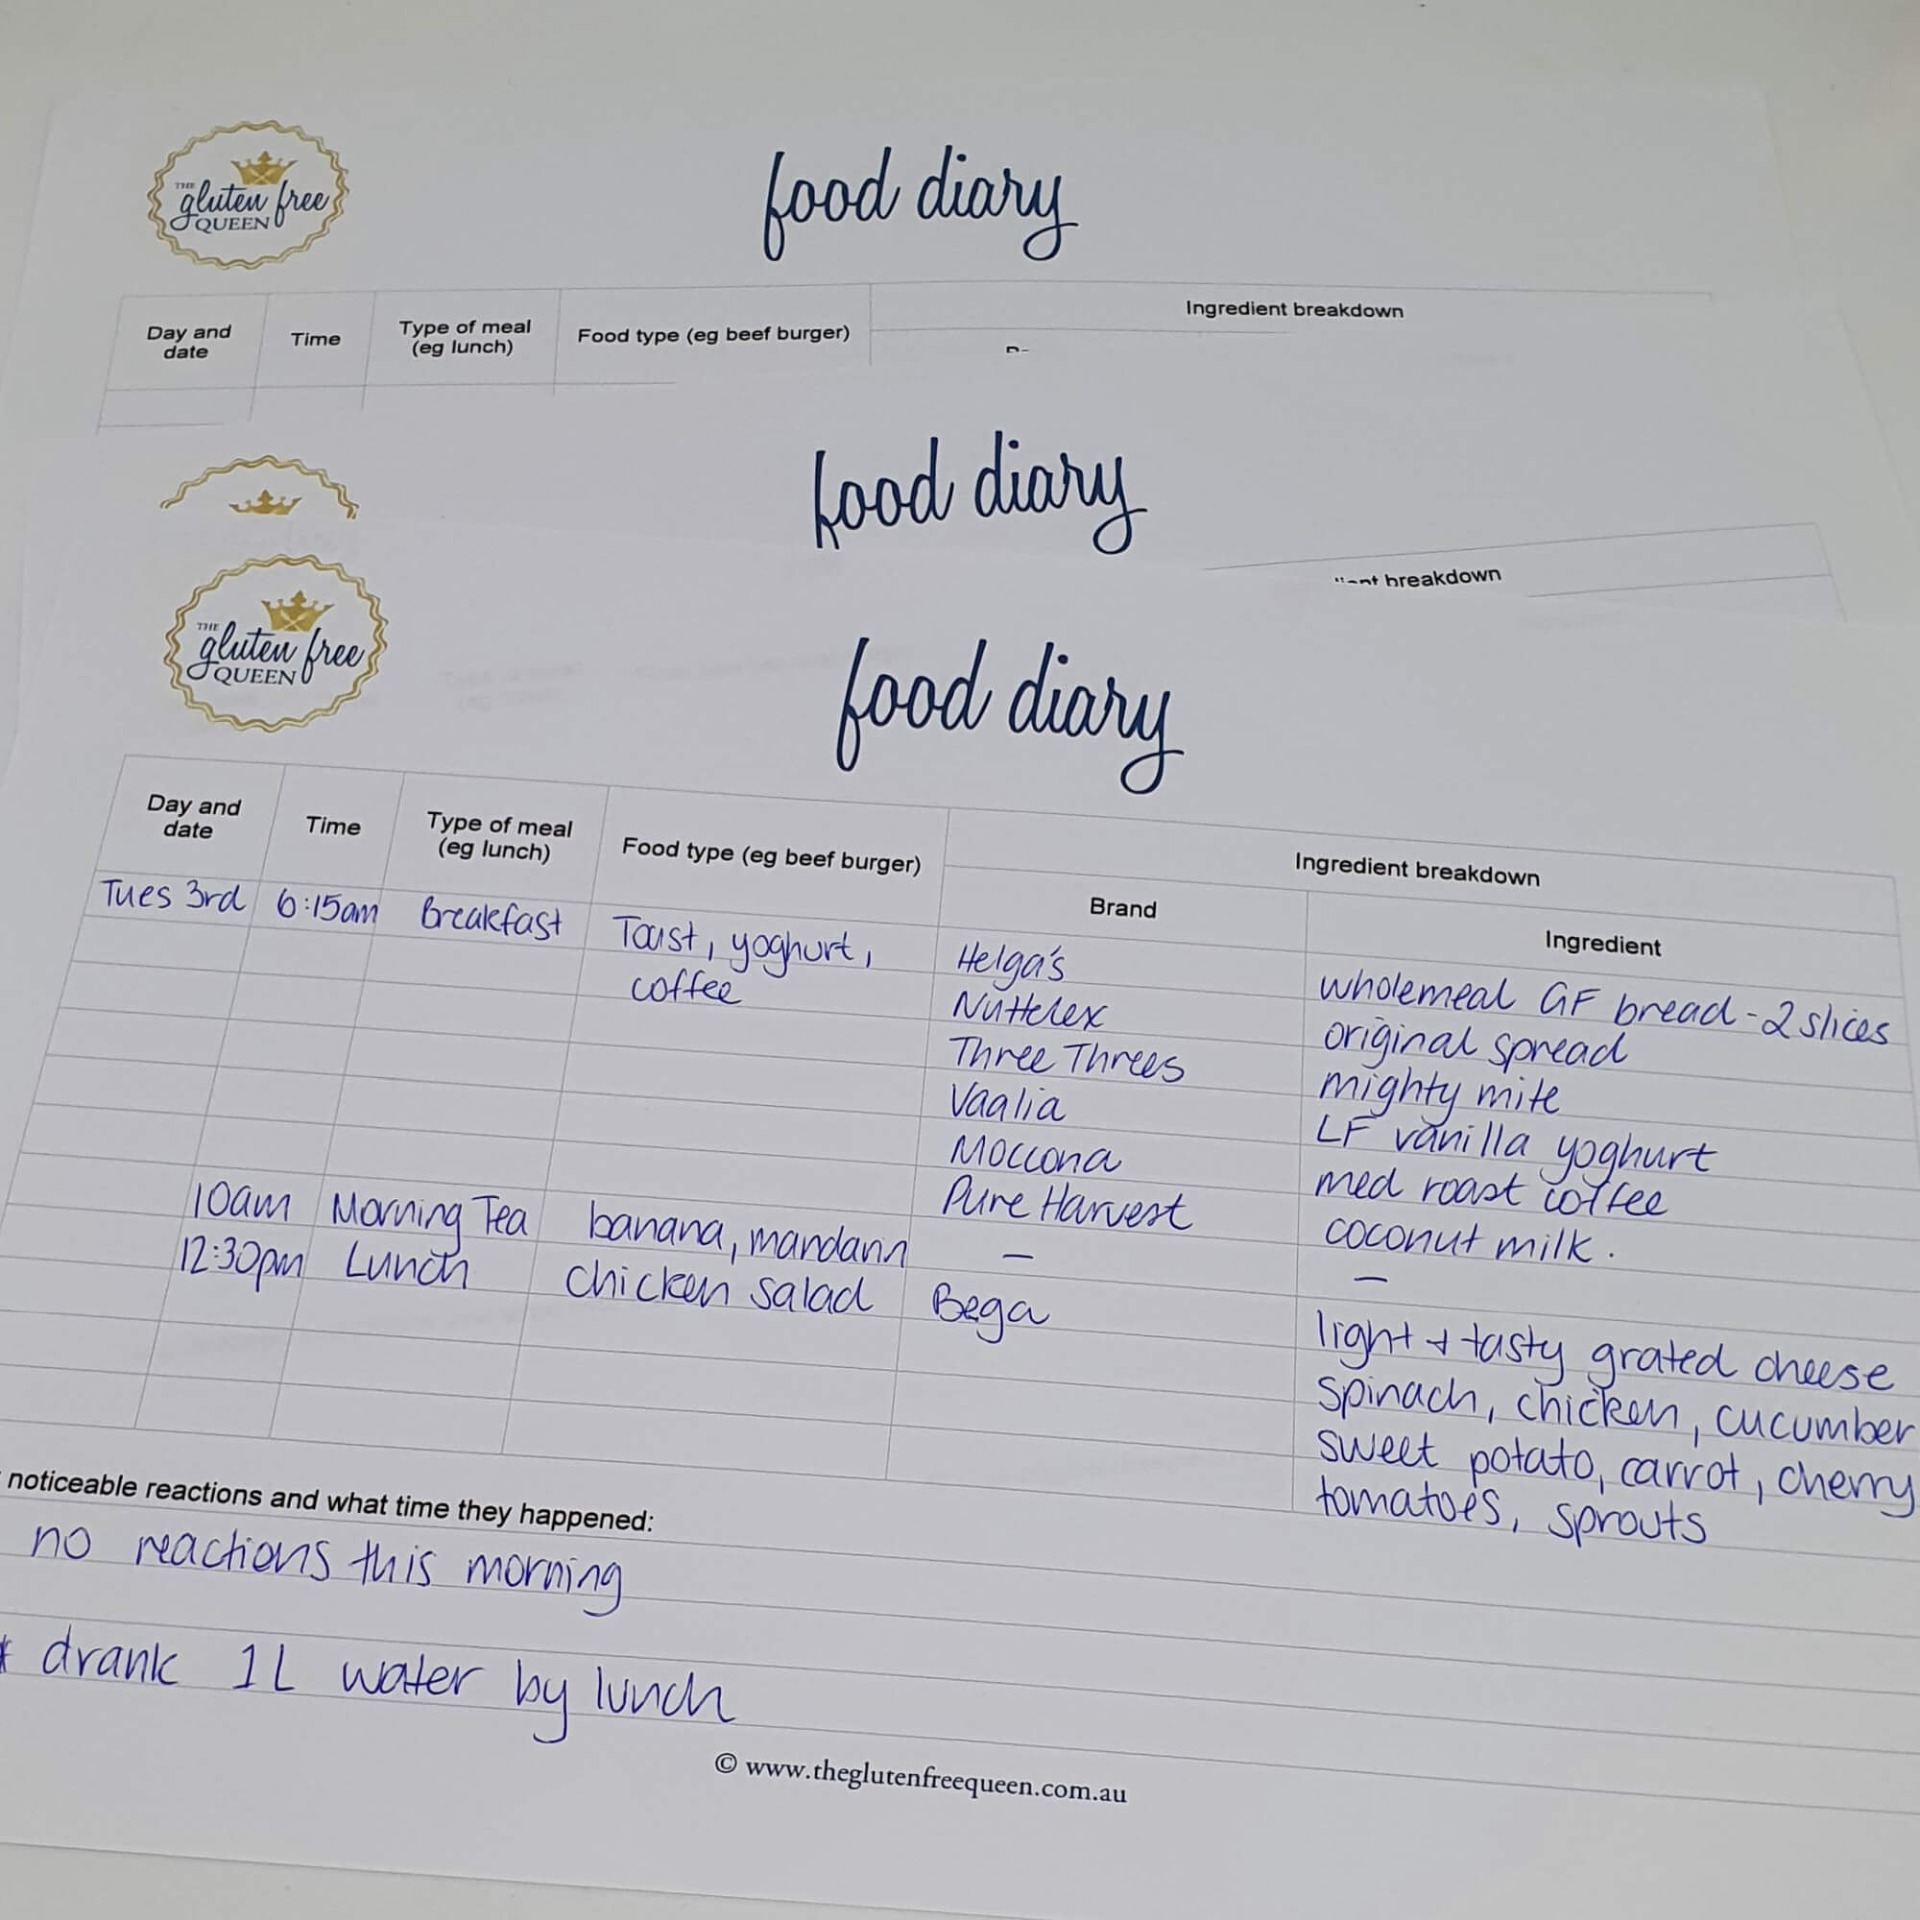 THE
gluten free
QUEEN
food diary
Day and
date
Time
Type of meal
(eg lunch)
Food type (eg beef burger)
Ingredient breakdown
food diary
breakdown
THE
gluten free
QUEEN
food diary
Day and
date
Time
Type of meal
(eg lunch)
Food type (eg beef burger)
Ingredient breakdown
Brand
Ingredient
Tues 3rd
6:15am
Breakfast
Toast, yoghurt,
coffee
Helga's
wholemeal GF bread - 2 slices
Nuttelex
original spread
Three Threes
mighty mite
Vaalia
LF vanilla yoghurt
Moccona
med roast coffee
Pure Harvest
coconut milk.
10am
Morning Tea
banana, mandarin
—
—
12:30pm
Lunch
chicken salad
Bega
light + tasty grated cheese
spinach, chicken, cucumber
sweet potato, carrot, cherry
tomatoes, sprouts
noticeable reactions and what time they happened:
no reactions this morning
* drank 1L water by lunch
© www.theglutenfreequeen.com.au